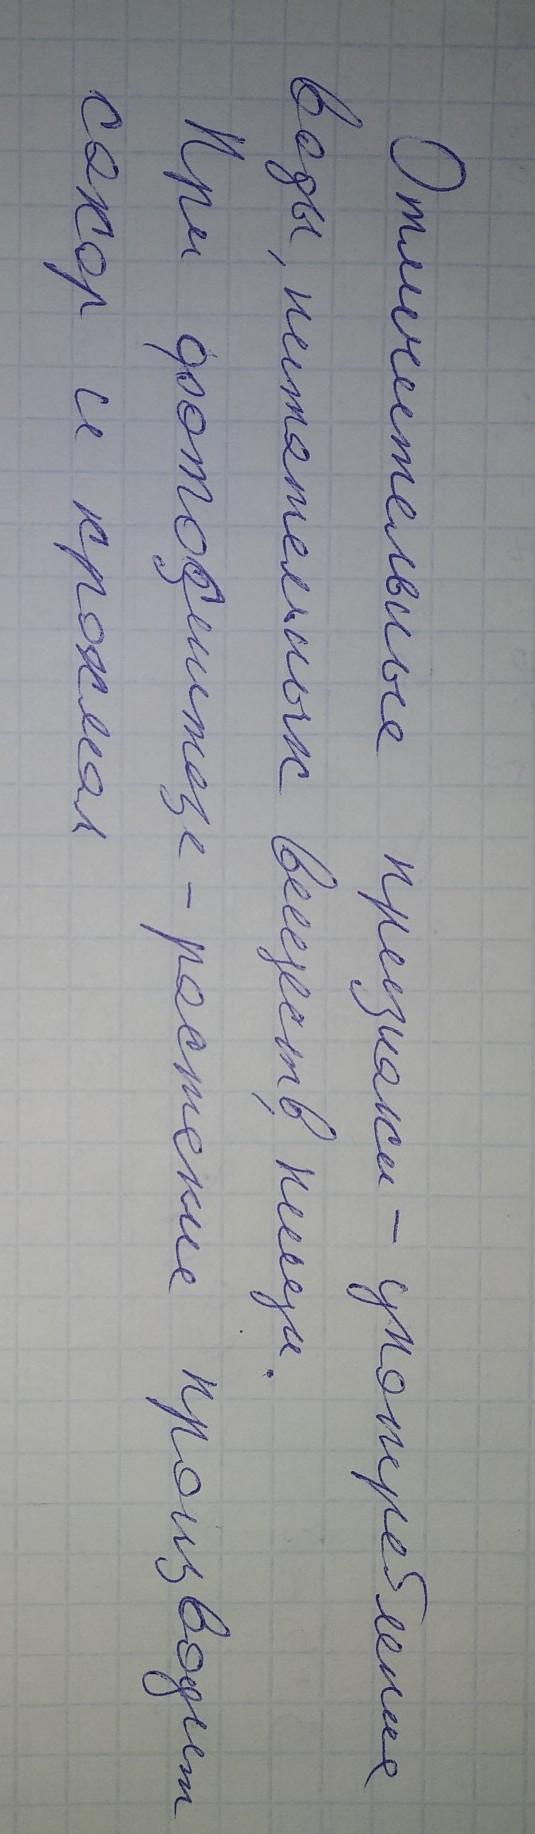 Отличительные презнаки - употребление
воды, питательных веществ, пищи.
При фотосинтезе - ростение производит
сахар и крахмал